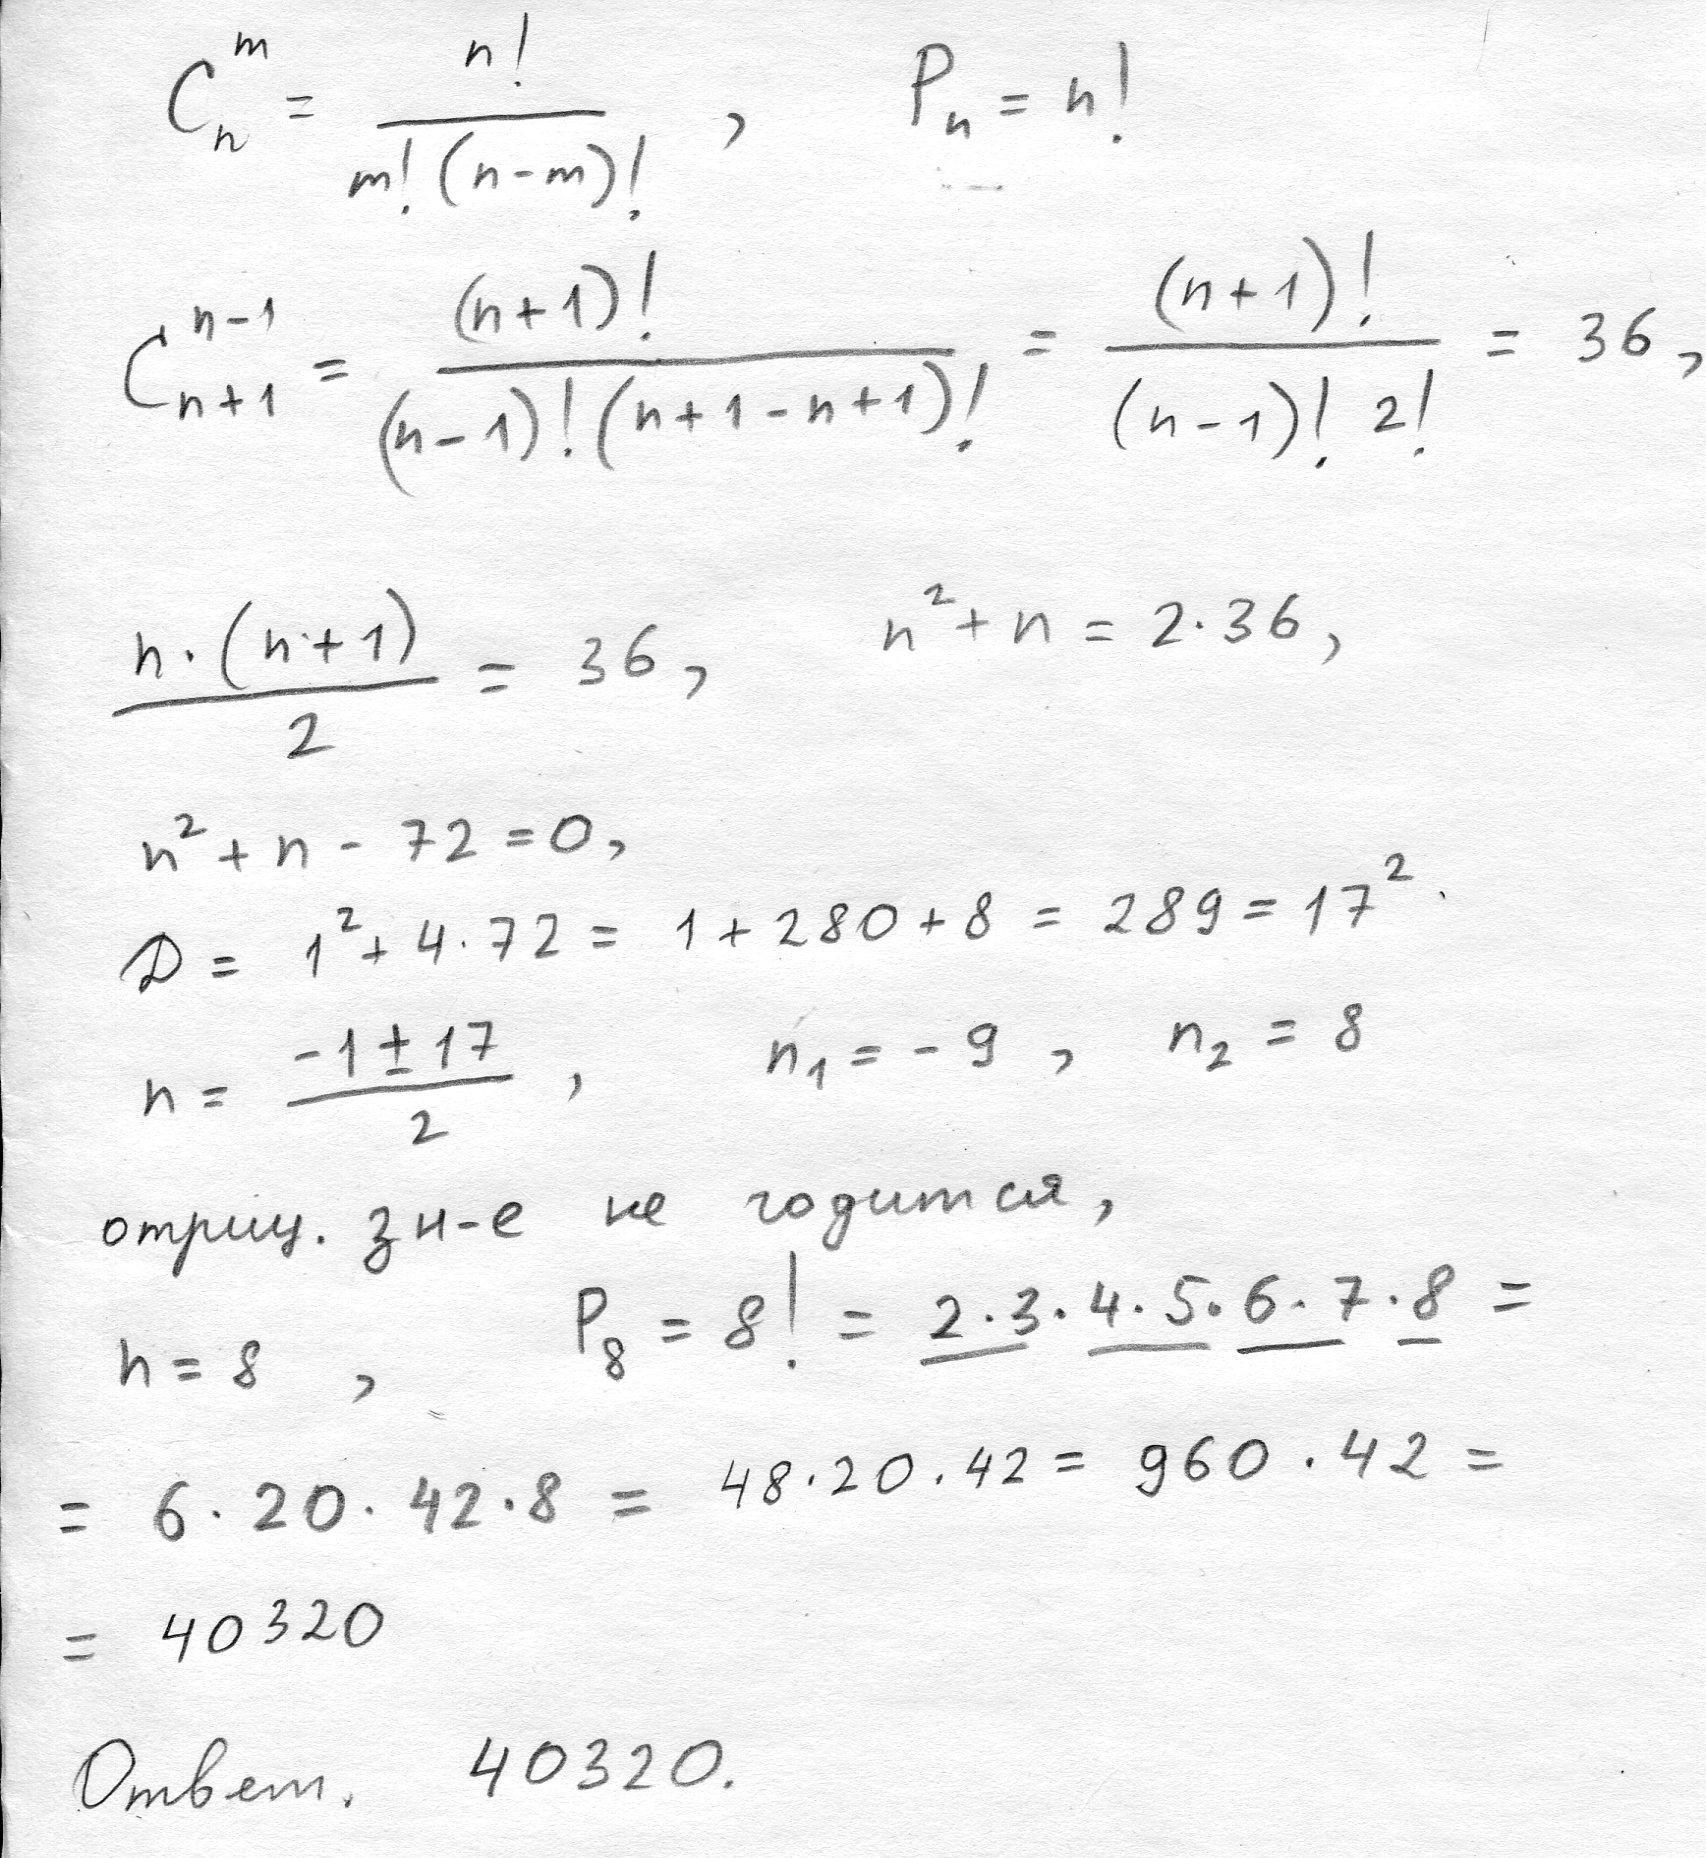 C_n^m = n! / (m! (n-m)!) , P_n = n!
C_{n+1}^{n-1} = (n+1)! / ((n-1)! (n+1-n+1)!) = (n+1)! / ((n-1)! 2!) = 36,
n·(n+1) / 2 = 36, n² + n = 2·36,
n² + n - 72 = 0,
D = 1² + 4·72 = 1 + 280 + 8 = 289 = 17².
n = (-1 ± 17) / 2 , n₁ = -9 , n₂ = 8
отриц. зн-е не годится,
n = 8 , P₈ = 8! = 2·3·4·5·6·7·8 =
= 6·20·42·8 = 48·20·42 = 960·42 =
= 40320
Ответ. 40320.